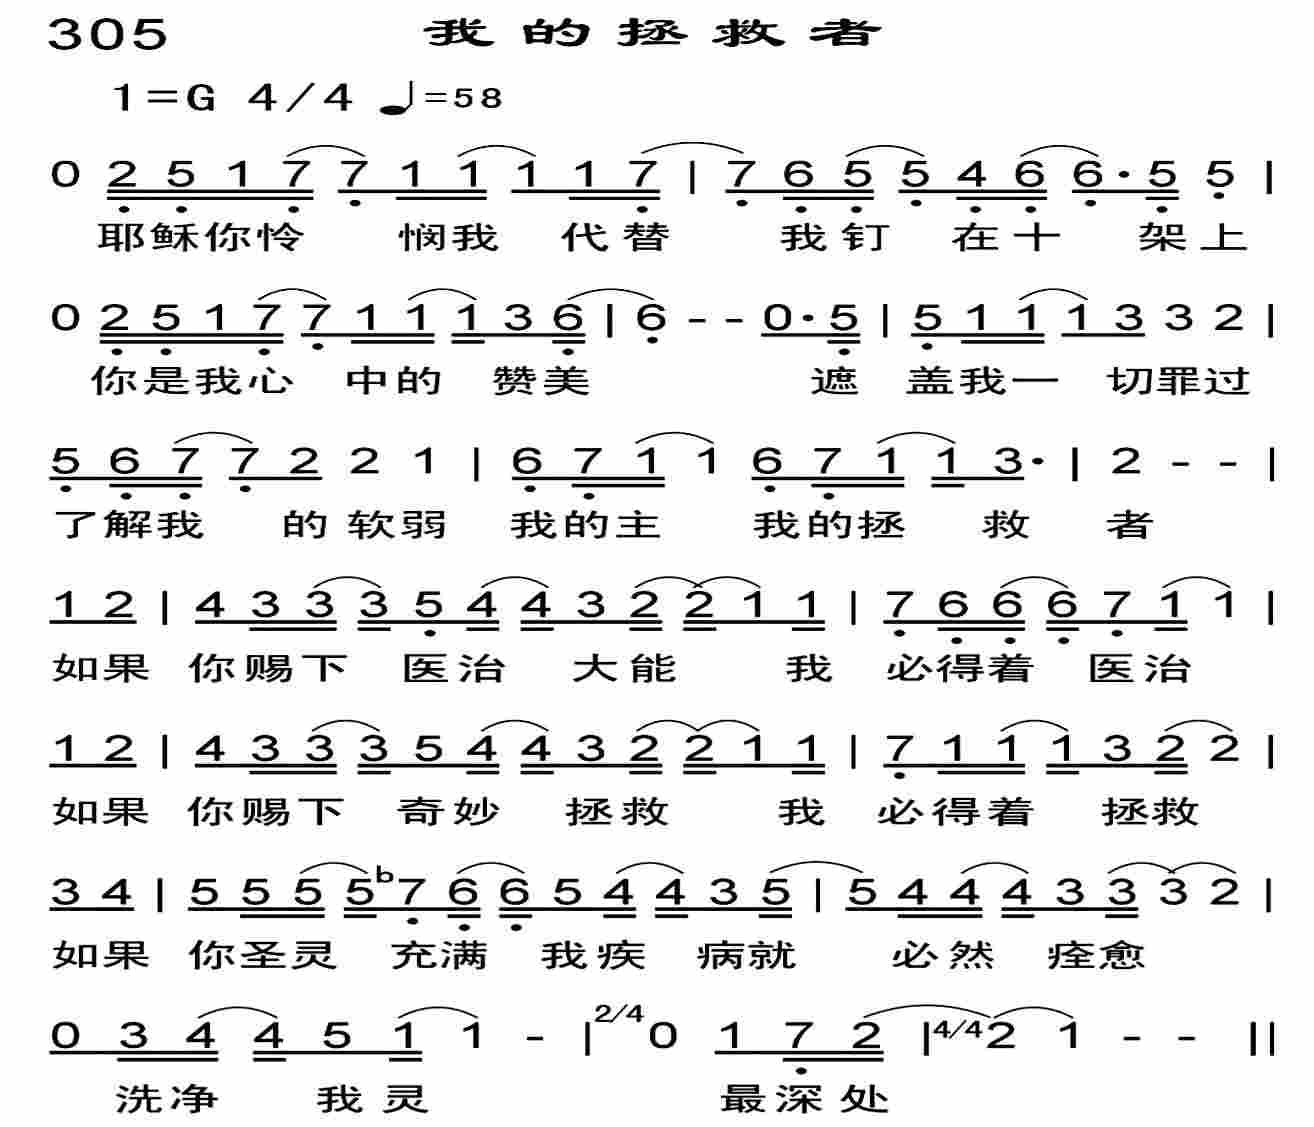 305 我的拯救者
1=G 4/4 ♩=58
0 2 5 1 7 7 1 1 1 1 7 | 7 6 5 5 4 6 6· 5 5 |
耶稣你怜 悯我 代替 我钉 在十 架上
0 2 5 1 7 7 1 1 1 3 6 | 6 - - 0· 5 | 5 1 1 1 3 3 2 |
你是我心 中的 赞美 遮 盖我一 切罪过
5 6 7 7 2 2 1 | 6 7 1 1 6 7 1 1 3· | 2 - - |
了解我 的软弱 我的主 我的拯 救 者
1 2 | 4 3 3 3 5 4 4 3 2 2 1 1 | 7 6 6 6 7 1 1 |
如果 你赐下 医治 大能 我 必得着 医治
1 2 | 4 3 3 3 5 4 4 3 2 2 1 1 | 7 1 1 1 3 2 2 |
如果 你赐下 奇妙 拯救 我 必得着 拯救
3 4 | 5 5 5 5 b7 6 6 5 4 4 3 5 | 5 4 4 4 3 3 3 2 |
如果 你圣灵 充满 我疾 病就 必然 痊愈
0 3 4 4 5 1 1 - | 2/4 0 1 7 2 | 4/4 2 1 - - ||
洗净 我灵 最深处